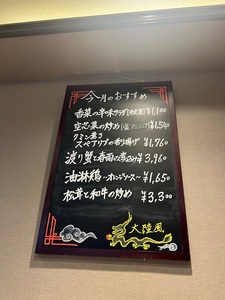 今月のおすすめ
香菜の辛味サラダ ¥1,100
空芯菜の炒め
クミン薫る
スペアリブの香り揚げ ¥1,760
渡り蟹と春雨の煮込み ¥3,960
油淋鶏 〜オレンジソース〜 ¥1,650
松茸と和牛の炒め ¥3,300
大陸風